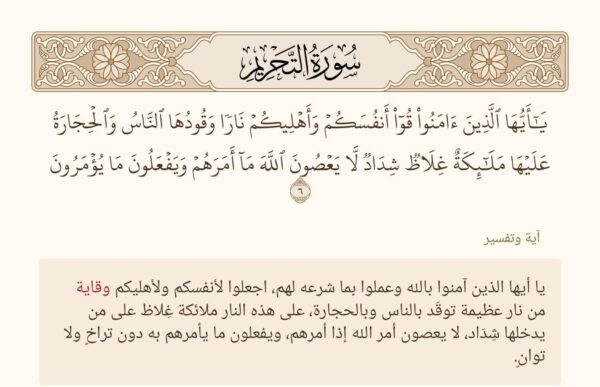 سُورَةُ التَّحْرِيمِ
يَٰٓأَيُّهَا ٱلَّذِينَ ءَامَنُواْ قُوٓاْ أَنفُسَكُمۡ وَأَهۡلِيكُمۡ نَارٗا وَقُودُهَا ٱلنَّاسُ وَٱلۡحِجَارَةُ
عَلَيۡهَا مَلَٰٓئِكَةٌ غِلَاظٞ شِدَادٞ لَّا يَعۡصُونَ ٱللَّهَ مَآ أَمَرَهُمۡ وَيَفۡعَلُونَ مَا يُؤۡمَرُونَ
٦
آية وتفسير
يا أيها الذين آمنوا بالله وعملوا بما شرعه لهم، اجعلوا لأنفسكم ولأهليكم وقاية
من نار عظيمة توقَد بالناس وبالحجارة، على هذه النار ملائكة غِلاظ على من
يدخلها شِدَاد، لا يعصون أمر الله إذا أمرهم، ويفعلون ما يأمرهم به دون تراخٍ ولا
توانٍ.